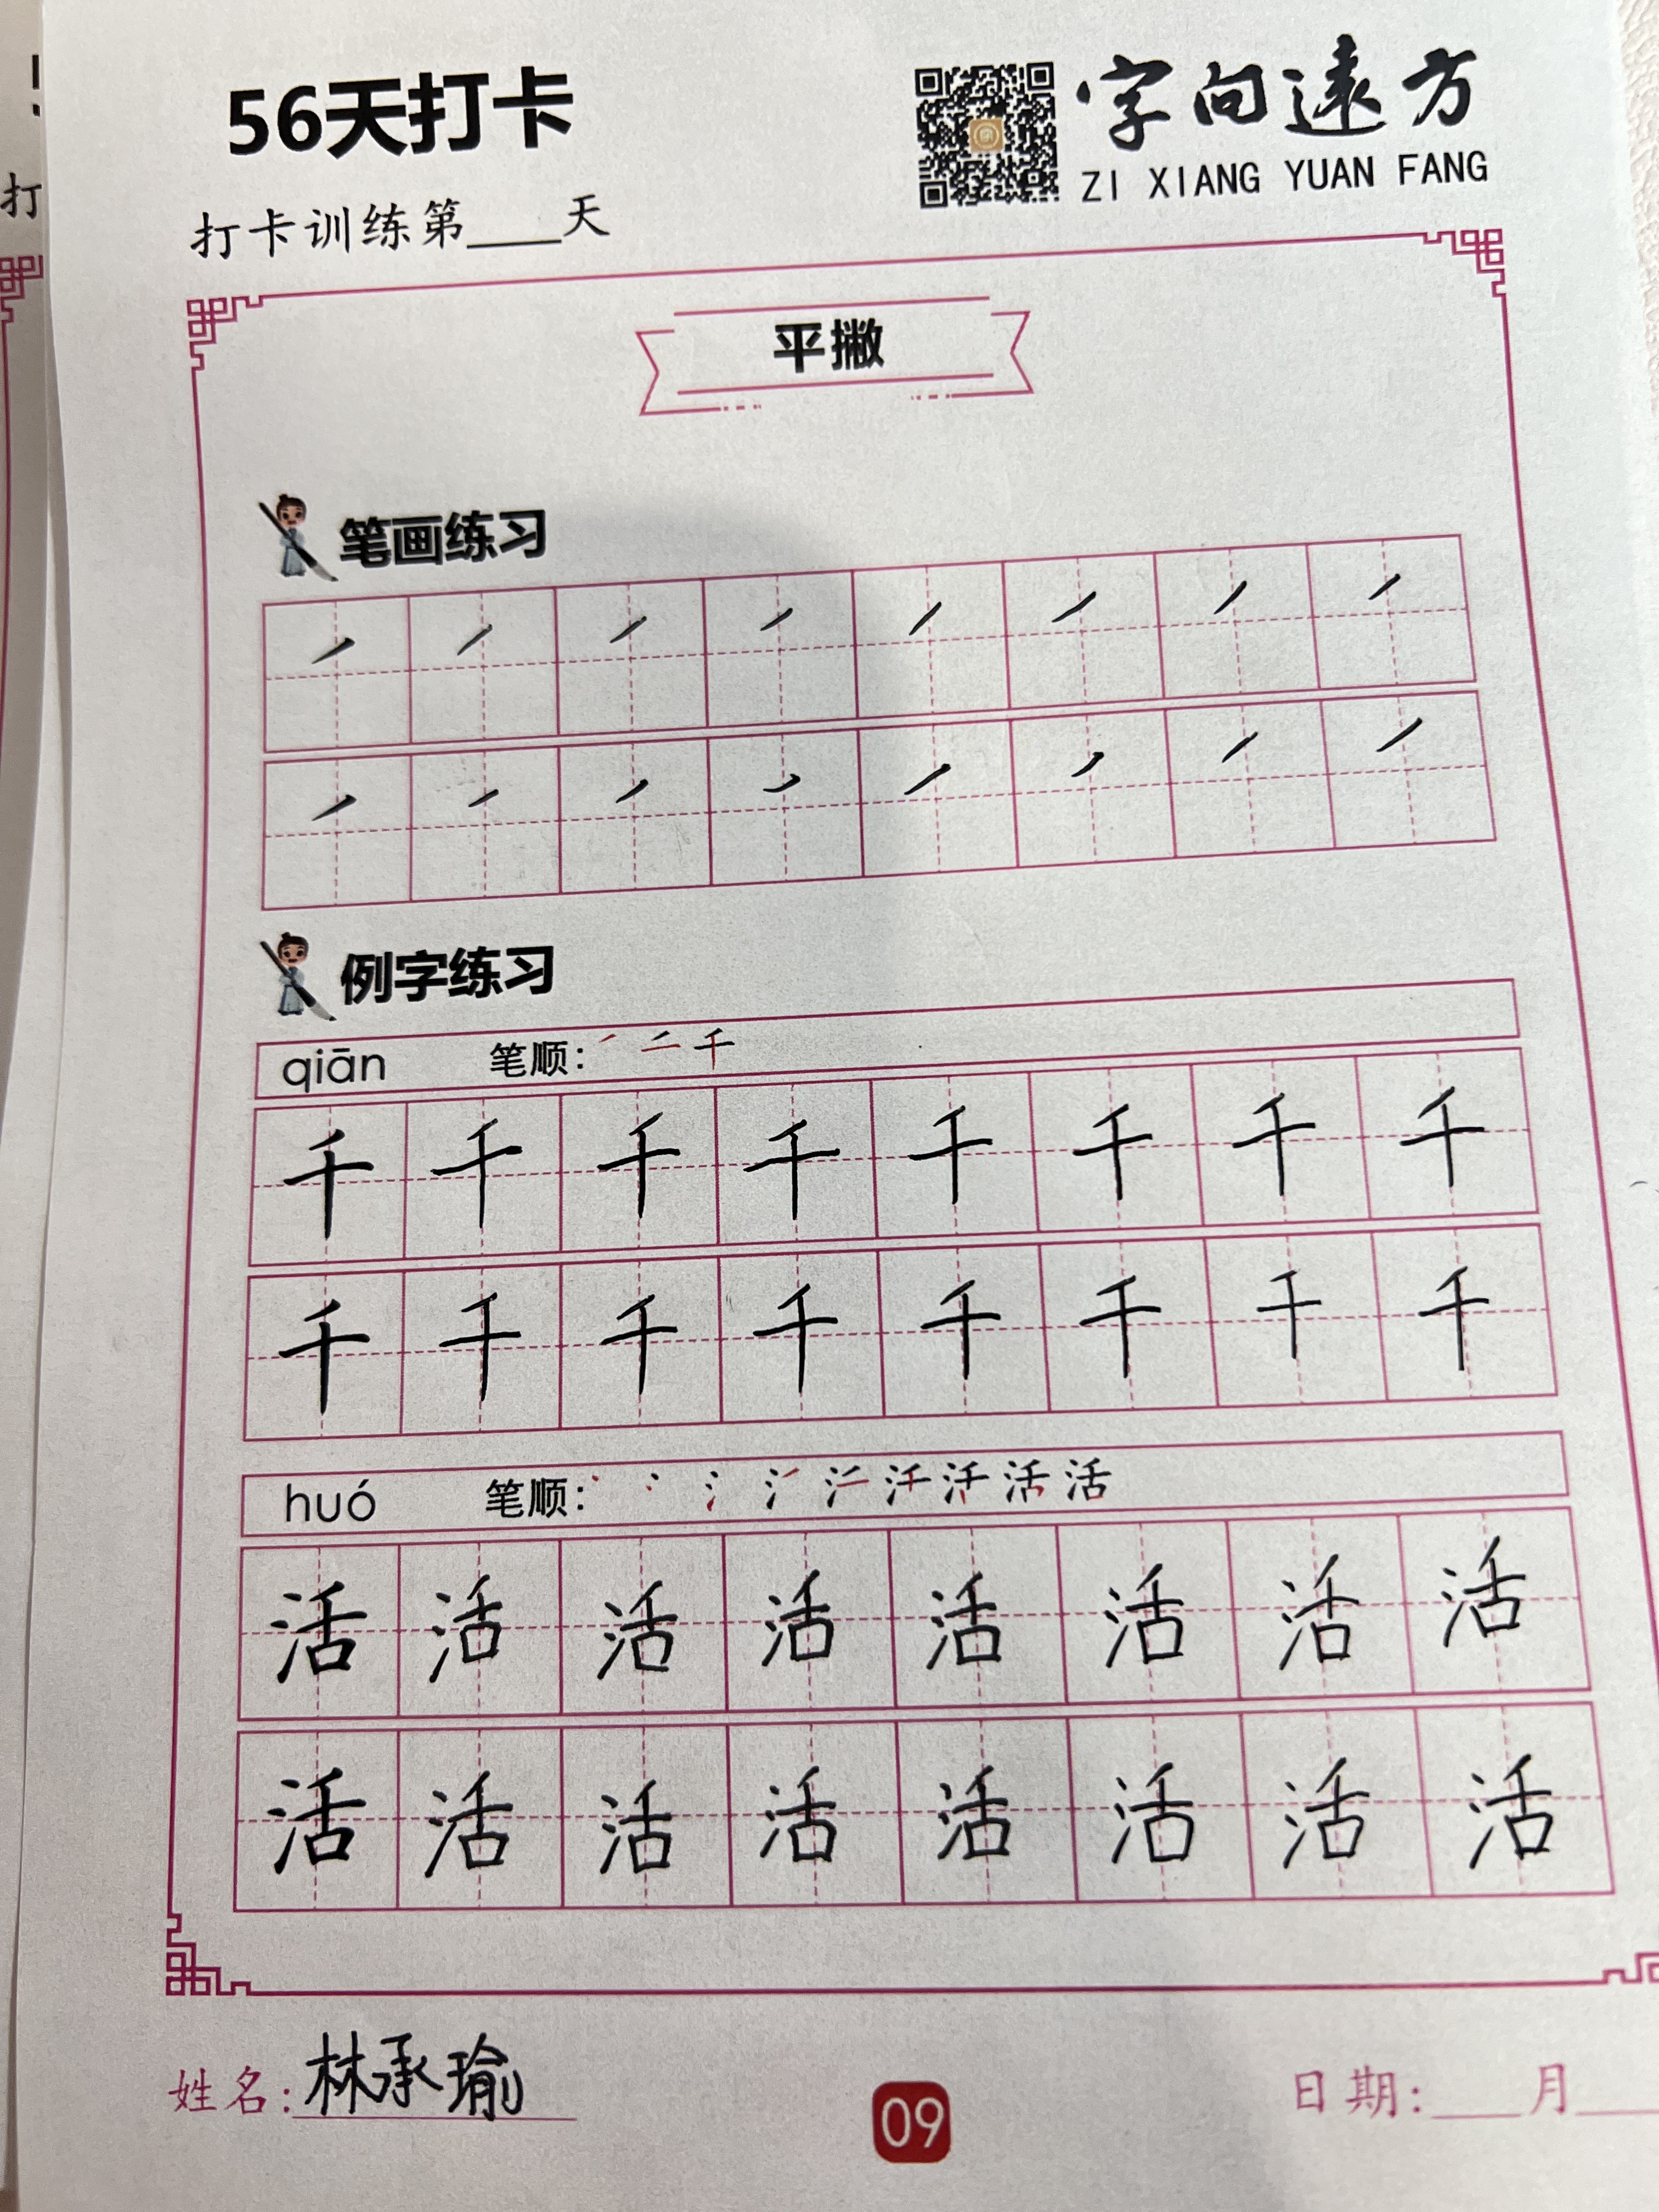 56天打卡
字向远方
ZI XIANG YUAN FANG
打卡训练第____天
平撇
笔画练习
例字练习
qiān 笔顺: 千
千 千 千 千 千 千 千 千
千 千 千 千 千 千 千 千
huó 笔顺: 活
活 活 活 活 活 活 活 活
活 活 活 活 活 活 活 活
姓名: 林承瑜
09
日期: ___月___